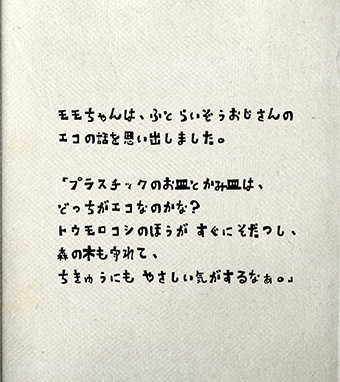 モモちゃんは、ふと らいぞうおじさんの
エコの話を思い出しました。
「プラスチックのお皿とかみ皿は、
どっちがエコなのかな?
トウモロコシのほうが すぐにそだつし、
森の木も守れて、
ちきゅうにも やさしい気がするなぁ。」